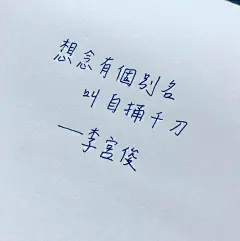 想念有個別名
叫自捅千刀
—李宮俊